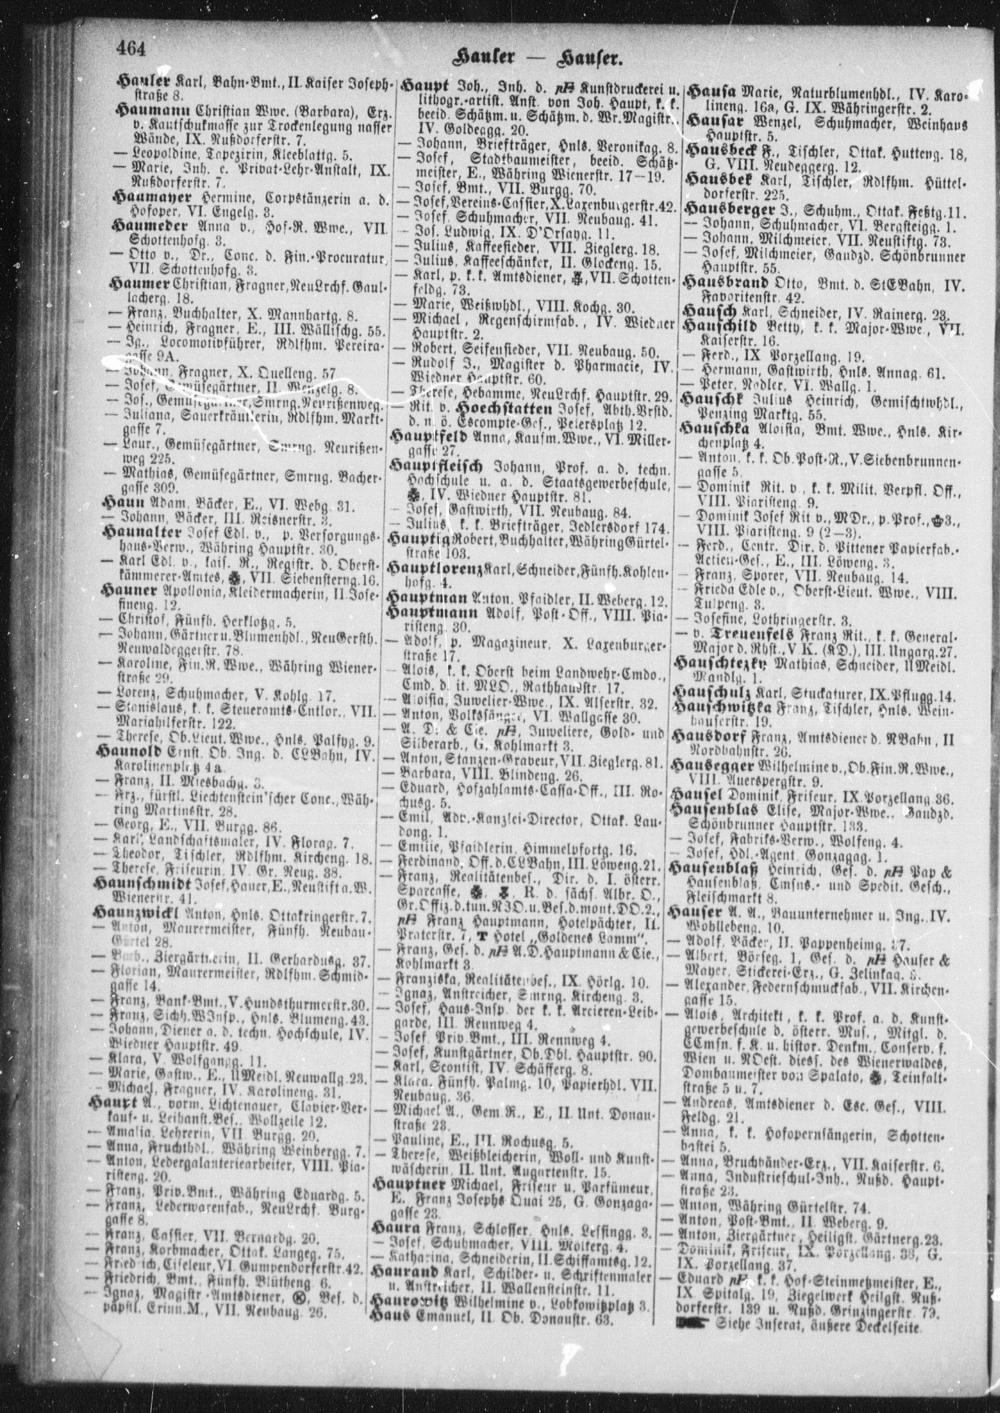 464
Hauler — Hauser.
Hauler Karl, Bahn-Bmt., II. Kaiser Joseph-
straße 8.
Haumann Christian Wwe. (Barbara), Erz.
v. Kautschukmasse zur Trockenlegung nasser
Wände, IX. Nußdorferstr. 7.
— Leopoldine, Tapezirin, Kleeblattg. 5.
— Marie, Inh. e. Privat-Lehr-Anstalt, IX.
Nußdorferstr. 7.
Haumayer Hermine, Corpstänzerin a. d.
Hofoper, VI. Engelg. 3.
Haumeder Anna v., Hof-R. Wwe., VII.
Schottenhofg. 3.
— Otto v., Dr., Conc. d. Fin.-Procuratur,
VII. Schottenhofg. 3.
Haumer Christian, Fragner, NeuLrchf. Gaul-
lacherg. 18.
— Franz, Buchhalter, X. Mannhartg. 8.
— Heinrich, Fragner, E., III. Wällischg. 55.
— Ig., Locomotivführer, Rdlfhm. Pereira-
gasse 9A.
— Johann, Fragner, X. Quelleng. 57
— Josef, Gemüsegärtner, II. Wenzelg. 8.
— Jos., Gemüsegärtner, Smrng. Neurißenweg.
— Juliana, Sauerkräutlerin, Rdlfhm. Markt-
gasse 7.
— Laur., Gemüsegärtner, Smrng. Neurißen-
weg 225.
— Mathias, Gemüsegärtner, Smrng. Bacher-
gasse 309.
Haun Adam, Bäcker, E., VI. Webg. 31.
— Johann, Bäcker, III. Reisnerstr. 3.
Haunalter Josef Edl. v., p. Versorgungs-
haus-Verw., Währing Hauptstr. 30.
— Karl Edl. v., kais. R., Registr. d. Oberst-
kämmerer-Amtes, VII. Siebensterng. 16.
Hauner Apollonia, Kleidermacherin, II. Jose-
fineng. 12.
— Christof, Fünfh. Herklotzg. 5.
— Johann, Gärtner u. Blumenhdl., NeuGersth.
Neuwaldeggerstr. 78.
— Karoline, Fin.R.Wwe., Währing Wiener-
straße 29.
— Lorenz, Schuhmacher, V. Kohlg. 17.
— Stanislaus, k. k. Steueramts-Cntlor., VII.
Mariahilferstr. 122.
— Therese, Ob.Lieut.Wwe., Hnls. Palfyg. 9.
Haunold Ernst, Ob. Ing. d. CLBahn, IV.
Karolinenplatz 4a.
— Franz, II. Miesbachg. 3.
— Frz., fürstl. Liechtenstein'scher Conc., Wäh-
ring Martinsstr. 28.
— Georg, E., VII. Burgg. 86.
— Karl, Landschaftsmaler, IV. Florag. 7.
— Theodor, Tischler, Rdlfhm. Kircheng. 18.
— Therese, Friseurin, IV. Gr. Neug. 38.
Haunschmidt Josef, Hauer, E., Neustift a. W.
Wienerstr. 41.
Haunzwickl Anton, Hnls. Ottakringerstr. 7.
— Anton, Maurermeister, Fünfh. Neubau-
Gürtel 28.
— Barb., Ziergärtnerin, II. Gerhardusg. 37.
— Florian, Maurermeister, Rdlfhm. Schmid-
gasse 14.
— Franz, Bank-Bmt., V. Hundsthurmerstr. 30.
— Franz, Sichh.WInsp., Hnls. Blumeng. 43.
— Johann, Diener a. d. techn. Hochschule, IV.
Wiedner Hauptstr. 49.
— Klara, V. Wolfgangg. 11.
— Marie, Gastw., E., UMeidl. Neuwallg. 23.
— Michael, Fragner, IV. Karolineng. 31.
Haupt A., vorm. Lichtenauer, Clavier-Ver-
kauf- u. Leihanst. Bes., Wollzeile 12.
— Amalia, Lehrerin, VII. Burgg. 20.
— Anna, Fruchthdl., Währing Weinbergg. 7.
— Anton, Ledergalanteriearbeiter, VIII. Pia-
risteng. 20.
— Franz, Priv.Bmt., Währing Eduardg. 5.
— Franz, Lederwarenfab., NeuLrchf. Burg-
gasse 8.
— Franz, Cassier, VII. Bernardg. 20.
— Franz, Korbmacher, Ottak. Langeg. 75.
— Friedrich, Ciseleur, VI. Gumpendorferstr. 42.
— Friedrich, Bmt., Fünfh. Blütheng. 6.
— Ignaz, Magistr.-Amtsdiener, Bes. d.
päpstl. Erinn.M., VII. Neubaug. 26.
Haupt Joh., Inh. d. pH Kunstdruckerei u.
lithogr.-artist. Anst. von Joh. Haupt, k. k.
beeid. Schätzm. u. Schätzm. d. Wr. Magistr.,
IV. Goldegg. 20.
— Johann, Briefträger, Hnls. Veronikag. 8.
— Josef, Stadtbaumeister, beeid. Schätz-
meister, E., Währing Wienerstr. 17—19.
— Josef, Bmt., VII. Burgg. 70.
— Josef, Vereins-Cassier, X. Laxenburgerstr. 42.
— Josef, Schuhmacher, VII. Neubaug. 41.
— Jos. Ludwig, IX. D'Orsayg. 11.
— Julius, Kaffeesieder, VII. Zieglerg. 18.
— Julius, Kaffeeschänker, II. Glockeng. 15.
— Karl, p. k. k. Amtsdiener, VII. Schotten-
feldg. 73.
— Marie, Weißwhdl., VIII. Kochg. 30.
— Michael, Regenschirmfab., IV. Wiedner
Hauptstr. 2.
— Robert, Seifensieder, VII. Neubaug. 50.
— Rudolf J., Magister d. Pharmacie, IV.
Wiedner Hauptstr. 60.
— Therese, Hebamme, NeuLrchf. Hauptstr. 29.
— Rit. v. Hoechstatten Josef, Abth.Vrstd.
d. n. ö. Escompte-Ges., Petersplatz 12.
Hauptfeld Anna, Kaufm.Wwe., VI. Miller-
gasse 27.
Hauptfleisch Johann, Prof. a. d. techn.
Hochschule u. a. d. Staatsgewerbeschule,
IV. Wiedner Hauptstr. 81.
— Josef, Gastwirth, VII. Neubaug. 84.
— Julius, k. k. Briefträger, Jedlersdorf 174.
Hauptig Robert, Buchhalter, Währing Gürtel-
straße 103.
Hauptlorenz Karl, Schneider, Fünfh. Kohlen-
hofg. 4.
Hauptman Anton, Pfaidler, II. Weberg. 12.
Hauptmann Adolf, Post-Off., VIII. Pia-
risteng. 30.
— Adolf, p. Magazineur, X. Laxenburger-
straße 17.
— Alois, k. k. Oberst beim Landwehr-Cmdo.,
Cmd. d. it. MLO., Rathhausstr. 17.
— Aloisia, Juwelier-Wwe., IX. Alserstr. 32.
— Anton, Volkssänger, VI. Wallgasse 30.
— A. D. & Cie. pH, Juweliere, Gold- und
Silberarb., G. Kohlmarkt 3.
— Anton, Stanzen-Graveur, VII. Zieglerg. 81.
— Barbara, VIII. Blindeng. 26.
— Eduard, Hofzahlamts-Cassa-Off., III. Ro-
chusg. 5.
— Emil, Adv.-Kanzlei-Director, Ottak. Lau-
dong. 1.
— Emilie, Pfaidlerin, Himmelpfortg. 16.
— Ferdinand, Off. d. CLBahn, III. Löweng. 21.
— Franz, Realitätenbes., Dir. d. I. österr.
Sparcasse, R. d. sächs. Albr. O.,
Gr.Offiz. d. tun. NJO. u. Bes. d. mont. DO. 2.,
pH Franz Hauptmann, Hotelpächter, II.
Praterstr. 7, T Hotel „Goldenes Lamm".
— Franz, Ges. d. pH A. D. Hauptmann & Cie.,
Kohlmarkt 3.
— Franziska, Realitätenbes., IX. Hörlg. 10.
— Ignaz, Anstreicher, Smrng. Kircheng. 3.
— Josef, Haus-Insp. der k. k. Arcieren-Leib-
garde, III. Rennweg 4.
— Josef, Priv.Bmt., III. Rennweg 4.
— Josef, Kunstgärtner, Ob.Dbl. Hauptstr. 90.
— Karl, Scontist, IV. Schäfferg. 8.
— Klara, Fünfh. Palmg. 10, Papierhdl. VII.
Neubaug. 36.
— Michael A., Gem R., E., II. Unt. Donau-
straße 23.
— Pauline, E., III. Rochusg. 5.
— Therese, Weißbleicherin, Woll- und Kunst-
wäscherin, II. Unt. Augartenstr. 15.
Hauptner Michael, Friseur u. Parfümeur,
E. Franz Josephs Quai 25, G. Gonzaga-
gasse 23.
Haura Franz, Schlosser, Hnls. Lessingg. 3.
— Josef, Schuhmacher, VIII. Mölkerg. 4.
— Katharina, Schneiderin, II. Schiffamtsg. 12.
Haurand Karl, Schilder- u. Schriftenmaler
u. Anstreicher, II. Wallensteinstr. 11.
Haurowitz Wilhelmine v., Lobkowitzplatz 3.
Haus Emanuel, II. Ob. Donaustr. 63.
Hausa Marie, Naturblumenhdl., IV. Karo-
lineng. 16a, G. IX. Währingerstr. 2.
Hausar Wenzel, Schuhmacher, Weinhaus
Hauptstr. 5.
Hausbeck F., Tischler, Ottak. Hutteng. 18,
G. VIII. Neudeggerg. 12.
Hausbek Karl, Tischler, Rdlfhm. Hüttel-
dorferstr. 225.
Hausberger J., Schuhm., Ottak. Festg. 11.
— Johann, Schuhmacher, VI. Bergsteigg. 1.
— Johann, Milchmeier, VII. Neustiftg. 73.
— Josef, Milchmeier, Gaudzd. Schönbrunner
Hauptstr. 55.
Hausbrand Otto, Bmt. d. StEBahn, IV.
Favoritenstr. 42.
Hausch Karl, Schneider, IV. Rainerg. 23.
Hauschild Betty, k. k. Major-Wwe., VII.
Kaiserstr. 16.
— Ferd., IX Porzellang. 19.
— Hermann, Gastwirth, Hnls. Annag. 61.
— Peter, Nadler, VI. Wallg. 1.
Hauschk Julius Heinrich, Gemischtwhdl.,
Penzing Marktg. 55.
Hauschka Aloisia, Bmt. Wwe., Hnls. Kir-
chenplatz 4.
— Anton, k. k. Ob.Post-R., V. Siebenbrunnen-
gasse 5.
— Dominik Rit. v., k. k. Milit. Verpfl. Off.,
VIII. Piaristeng. 9.
— Dominik Josef Rit v., MDr., p. Prof., 3.,
VIII. Piaristeng. 9 (2—3).
— Ferd., Centr. Dir. d. Pittener Papierfab.-
Actien-Ges., E., III. Löweng. 3.
— Franz, Sporer, VII. Neubaug. 14.
— Frieda Edle v., Oberst-Lieut. Wwe., VIII.
Tulpeng. 3.
— Josefine, Lothringerstr. 3.
— v. Treuenfels Franz Rit., k. k. General-
Major d. Rhst., V K. (KD.), III. Ungarg. 27.
Hauschtezky Mathias, Schneider, UMeidl.
Mandlg. 1.
Hauschulz Karl, Stuckaturer, IX. Pflugg. 14.
Hauschwitzka Franz, Tischler, Hnls. Wein-
hauserstr. 19.
Hausdorf Franz, Amtsdiener d. NBahn, II
Nordbahnstr. 26.
Hausegger Wilhelmine v., Ob.Fin.R.Wwe.,
VIII. Auerspergstr. 9.
Hausel Dominik, Friseur, IX. Porzellang 36.
Hausenblas Elise, Major-Wwe., Gaudzd.
Schönbrunner Hauptstr. 133.
— Josef, Fabriks-Verw., Wolfeng. 4.
— Josef, Hdl.-Agent, Gonzagag. 1.
Hausenblaß Heinrich, Ges. d. pH Pap &
Hausenblaß, Cmsns.- und Spedit. Gesch.,
Fleischmarkt 8.
Hauser A. A., Bauunternehmer u. Ing. IV.
Wohllebeng. 10.
— Adolf, Bäcker, II. Pappenheimg. 27.
— Albert, Börseg. 1, Ges. d. pH Hauser &
Mayer, Stickerei-Erz., G. Zelinkag. 6.
— Alexander, Federnschmuckfab., VII. Kirchen-
gasse 15.
— Alois, Architekt, k. k. Prof. a. d. Kunst-
gewerbeschule d. österr. Mus., Mitgl. d.
CCmsn. f. K. u. histor. Denkm., Conserv. f.
Wien u. NOest. dies. des Wienerwaldes,
Dombaumeister von Spalato, Teinfalt-
straße 5 u. 7.
— Andreas, Amtsdiener d. Esc. Ges., VIII.
Feldg. 21.
— Anna, k. k. Hofopernsängerin, Schotten-
bastei 5.
— Anna, Bruchbänder-Erz., VII. Kaiserstr. 6.
— Anna, Industrieschul-Inh., Nußd. Haupt-
straße 23.
— Anton, Währing Gürtelstr. 74.
— Anton, Post-Bmt., II. Weberg. 9.
— Anton, Ziergärtner, Heiligst. Gärtnerg. 23.
— Dominik, Friseur, IX. Porzellang. 36, G.
IX. Porzellang. 37.
— Eduard pH, k. k. Hof-Steinmetzmeister, E.,
IX Spitalg. 19, Ziegelwerk Heilgst. Nuß-
dorferstr. 139 u. Nußd. Grinzingerstr. 79.
Siehe Inserat, äußere Deckelseite